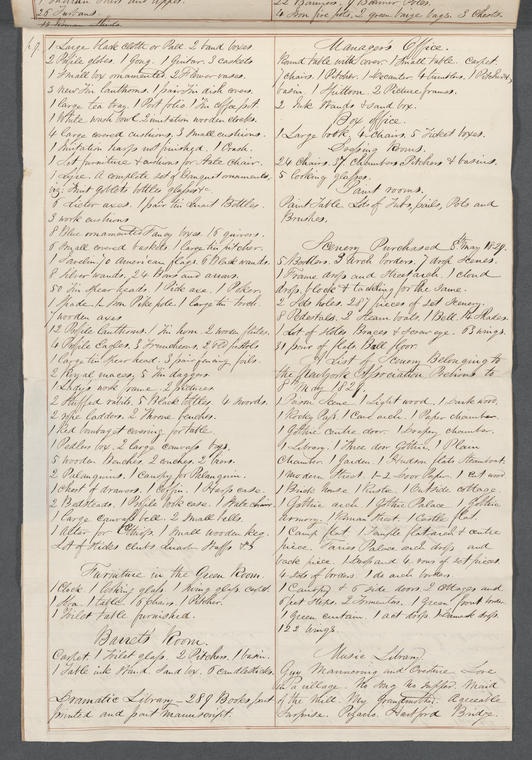 26 Turbans
4 Iron fire pots, 2 green baize bags. 3 Chests.
1 Large black cloth or Pall 2 band boxes
2 Profile globes 1 Gong. 1 Guitar. 3 caskets
1 Small box ornamented. 2 Flower vases.
3 New Tin lanthorns. 1 pair Tin dish covers
1 large tea tray. 1 Port folio 1 Tin coffee pot
1 White wash bowl. 2 imitation wooden clocks.
4 large covered cushions, 3 Small cushions.
1 Imitation harp not finished. 1 Crash.
1 Set furniture & cushions for State chair.
1 Lyre. A complete set of Banquet ornaments,
viz: Fruit goblets bottles glasses &c.
5 Lictor axes. 1 pair tin Bottles.
3 work cushions
8 Blue ornamented Fancy boxes. 15 quivers.
6 Small covered baskets 1 large tin pitcher.
1 Javelin. 10 American flags 6 Black wands.
8 Silver wands, 24 Bows and arrows.
50 Tin Spear heads. 1 Pick axe. 1 Poker.
1 Spade. 1 Iron Pike pole. 1 large tin torch.
7 wooden axes
12 Profile lanthorns. 1 Tin horn. 2 wooden flutes.
4 Profile Eagles. 3 Truncheons. 2 old pistols
1 large tin Spear head. 3 pair fencing foils.
2 Royal maces, 5 Tin daggers
1 Ladys work frame. 2 pictures
2 Stuffed rabbits. 5 Black bottles. 4 swords.
2 rope ladders. 2 Throne benches.
1 Red bombazet covering for table.
1 Pedlers box. 2 large canvass bags.
5 wooden Benches, 2 couches. 2 biers.
2 Palanquins. 1 Canopy for Palanquin.
1 Chest of drawers, 1 Coffin. 1 Harps case
2 Bedsteads. 1 Profile book case. 1 State chair
1 large canvass bell. 2 Small bells.
1 Altar for 1 Small wooden keg.
Lot of Sticks clubs Staffs &c
Furniture in the Green Room.
1 Clock 1 looking glass. 1 Swing glass, carpet.
1 Sofa. 1 table. 6 chairs. 1 Pitcher.
1 Toilet table furnished.
Barrett's Room.
Carpet. 1 Toilet glass. 2 Pitchers. 1 basin.
1 Table ink Stand. Sand box. 6 candlesticks.
Dramatic Library — 289 Books part
printed and part Manuscript.
Managers Office.
Round table with cover. 1 Small table. Carpet.
7 chairs. 1 Pitcher. 1 Decanter. 4 tumblers. 1 Pitcher &
basin. 1 Spittoon. 2 Picture frames.
2 Ink Stands & sand box.
Box office.
1 Large book, 4 Chairs. 5 Ticket boxes.
Dressing Rooms.
24 Chairs. 27 chambers Pitchers & basins.
5 Looking glasses.
Paint rooms.
Paint Table. Lots of Tubs, pails, Pots and
Brushes.
Scenery Purchased 8th May 1829.
5 Borders. 3 Arch borders. 7 drop Scenes.
1 Frame drop and Stack arch. 1 cloud
drop, & flock & tackling for the same.
2 Side holes. 257 pieces of set scenery.
8 Pedestals. 2 Steam boats. 1 Bell. 14 Shades.
1 Lot of Stiles Braces & screw eye. 63 wings.
31 pairs of flats. Ball floor.
A List of Scenery Belonging to
the Newyork Association Previous to
8th May 1829.
1 Prison Scene. 1 Light wood. 1 Dark wood.
1 Rocky Pass. 1 Cave arch. 1 Paper chamber.
1 Gothic centre door. 1 Drapery chamber.
1 Library. 1 Three door Gothic. 1 Plain
Chamber. 1 Garden. 1 Hudson flats Steamboat.
1 modern Street. 1-2 door Paper. 1 cut wood
1 Brick House 1 Rustic 1 Outside cottage.
1 Gothic arch 1 Gothic Palace 1 Gothic
Armory. 1 Roman Street. 1 Castle flat
1 Camp flat 1 Temple flat arch & centre
piece. Fairies Palace arch drops and
back piece. 1 Drop and 4 rows of set pieces
4 sets of borders. 1 do arch borders.
1 Canopy & 6 side doors. 2 Cottages and
6 set steps. 2 Tormentors. 1 Green front border.
1 Green curtain. 1 act drop. 1 damask drop.
122 wings.
Music Library.
Guy Mannering and Overture. Love
in a village. No Song No Supper. Maid
of the Mill. My Grandmother. Agreeable
Surprise. Pizarro. Hartford Bridge.